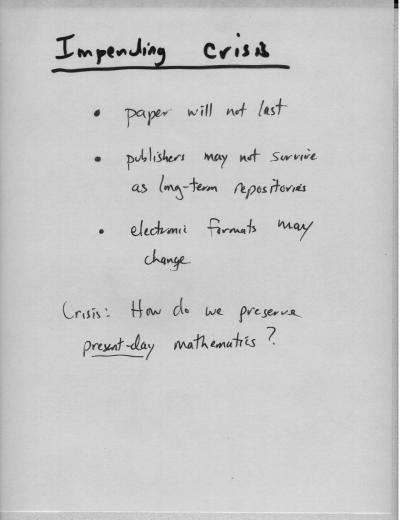 Impending Crisis
• paper will not last
• publishers may not survive
as long-term repositories
• electronic formats may
change
Crisis: How do we preserve
present-day mathematics?